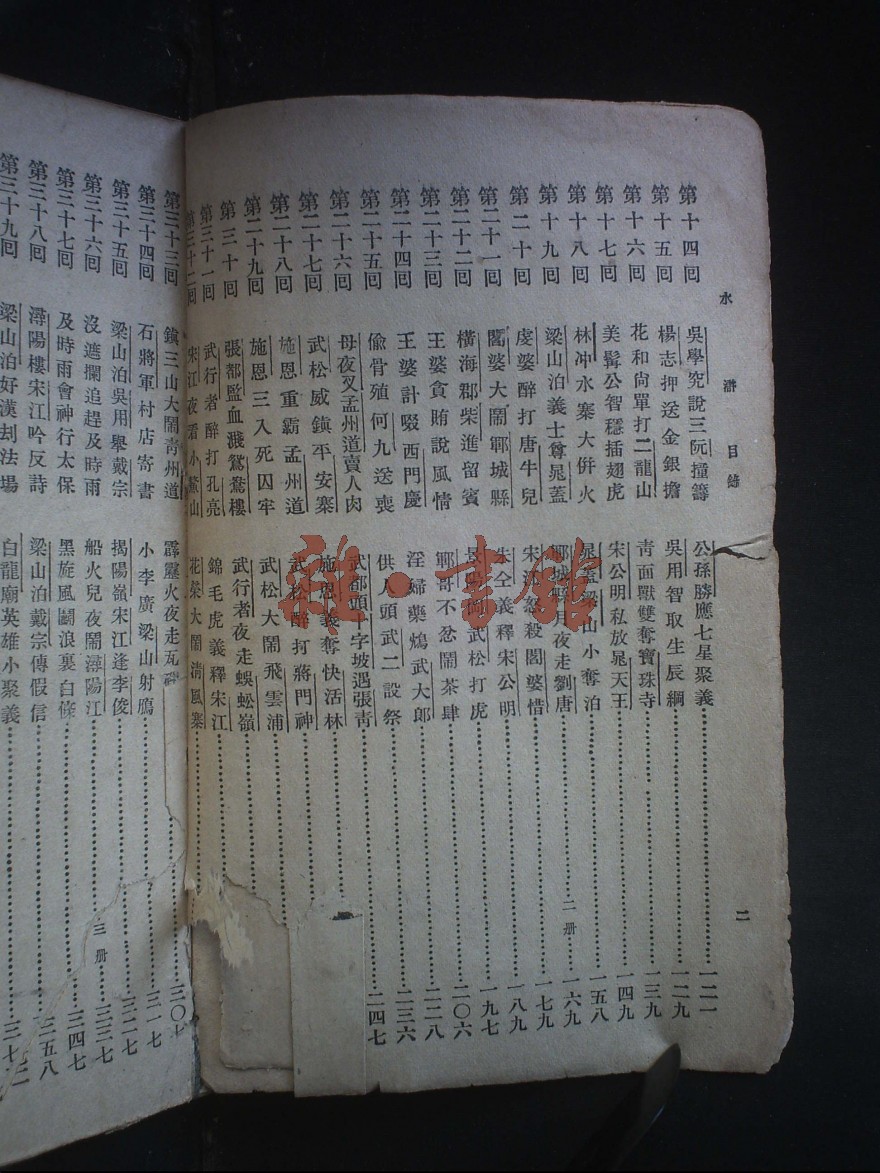 水滸 目錄 二
第十四回 吳學究說三阮撞籌 公孫勝應七星聚義 一二一
第十五回 楊志押送金銀擔 吳用智取生辰綱 一二九
第十六回 花和尚單打二龍山 青面獸雙奪寶珠寺 一三九
第十七回 美髯公智穩插翅虎 宋公明私放晁天王 一四九
第十八回 林冲水寨大併火 晁蓋梁山小奪泊 一五八
第十九回 梁山泊義士尊晁蓋 鄆城縣月夜走劉唐 二册 一六九
第二十回 虔婆醉打唐牛兒 宋江怒殺閻婆惜 一七九
第二十一回 閻婆大鬧鄆城縣 朱仝義釋宋公明 一八九
第二十二回 橫海郡柴進留賓 景陽岡武松打虎 一九七
第二十三回 王婆貪賄說風情 鄆哥不忿鬧茶肆 二〇六
第二十四回 王婆計啜西門慶 淫婦藥鴆武大郎 二二八
第二十五回 偸骨殖何九送喪 供人頭武二設祭 二三六
第二十六回 母夜叉孟州道賣人肉 武都頭十字坡遇張青 二四七
第二十七回 武松威鎮平安寨 施恩義奪快活林
第二十八回 施恩重霸孟州道 武松醉打蔣門神
第二十九回 施恩三入死囚牢 武松大鬧飛雲浦
第三十回 張都監血濺鴛鴦樓 武行者夜走蜈蚣嶺
第三十一回 武行者醉打孔亮 錦毛虎義釋宋江
第三十二回 宋江夜看小鰲山 花榮大鬧清風寨
第三十三回 鎮三山大鬧青州道 霹靂火夜走瓦 三〇七
第三十四回 石將軍村店寄書 小李廣梁山射鴈 三一七
第三十五回 梁山泊吳用舉戴宗 揭陽嶺宋江逢李俊 三二七
第三十六回 沒遮攔追趕及時雨 船火兒夜鬧潯陽江 三册 三三七
第三十七回 及時雨會神行太保 黑旋風鬬浪裏白條 三四七
第三十八回 潯陽樓宋江吟反詩 梁山泊戴宗傳假信 三五八
第三十九回 梁山泊好漢刦法場 白龍廟英雄小聚義 三七二
雜·書館